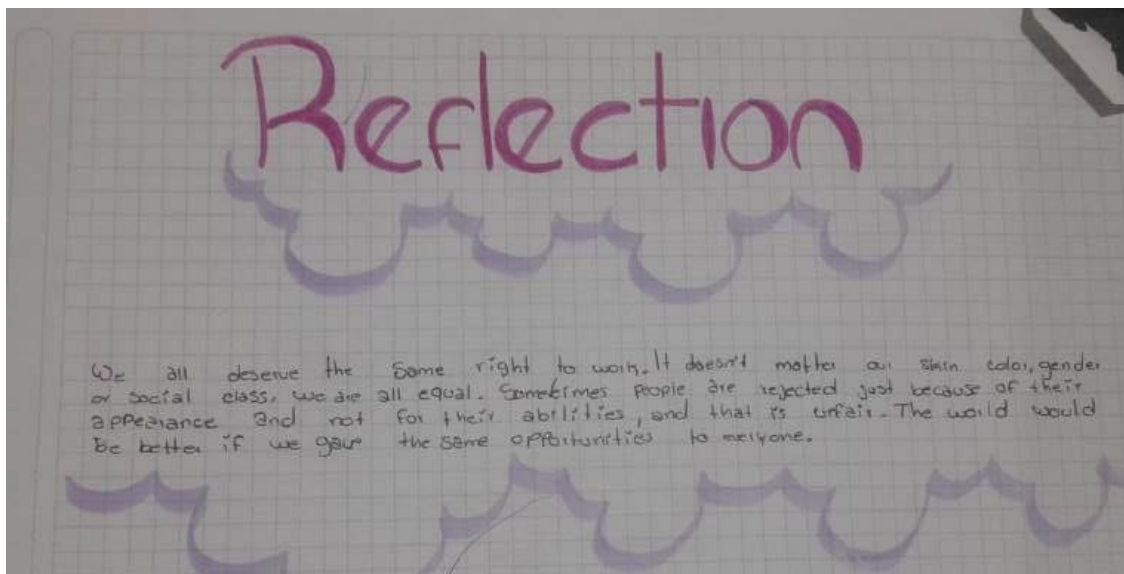 Reflection
We all deserve the same right to work. It doesn't matter our skin color, gender
or social class, we are all equal. Sometimes people are rejected just because of their
appearance and not for their abilities, and that is unfair. The world would
be better if we gave the same opportunities to everyone.